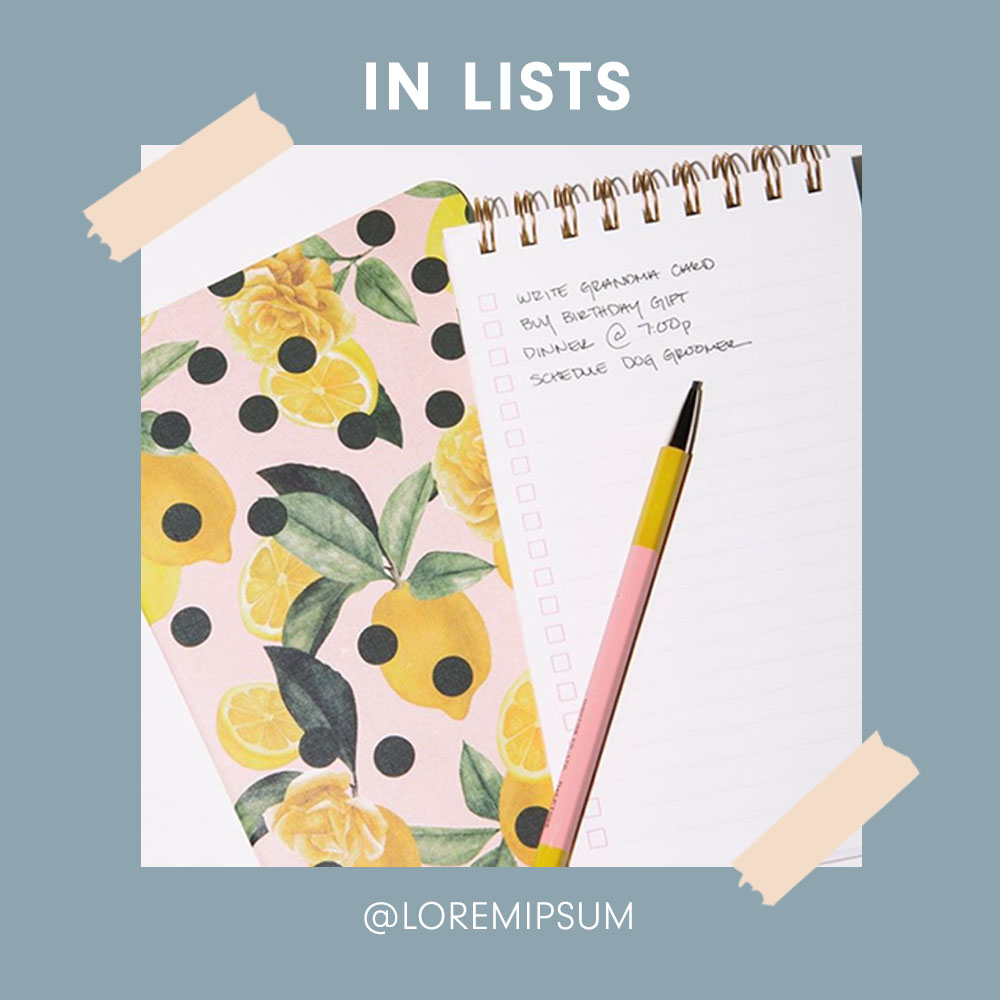 IN LISTS
WRITE GRANDMA CARD
BUY BIRTHDAY GIFT
DINNER @ 7:00p
SCHEDULE DOG GROOMER
@LOREMIPSUM